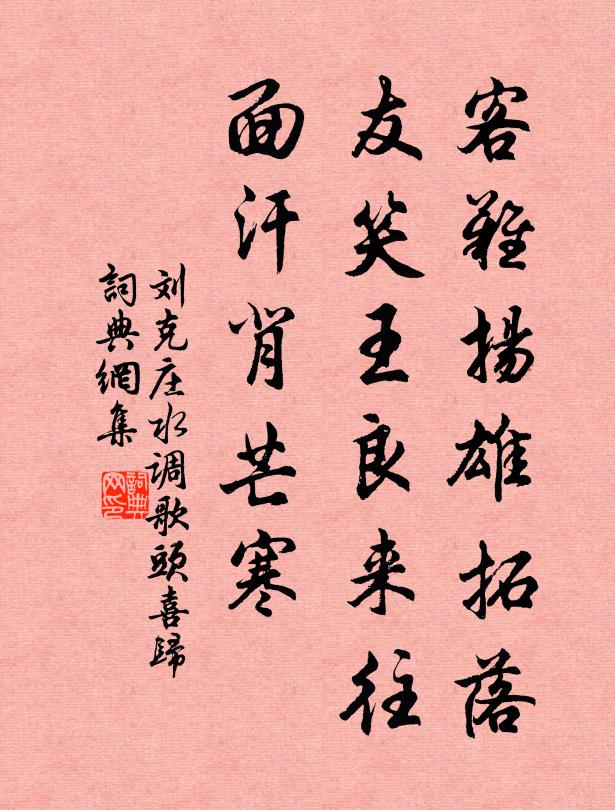 客難揚雄拓落
友笑王良来往
面汗背芒寒
刘克庄水调歌頭喜歸
詞典網集
詞典
网印